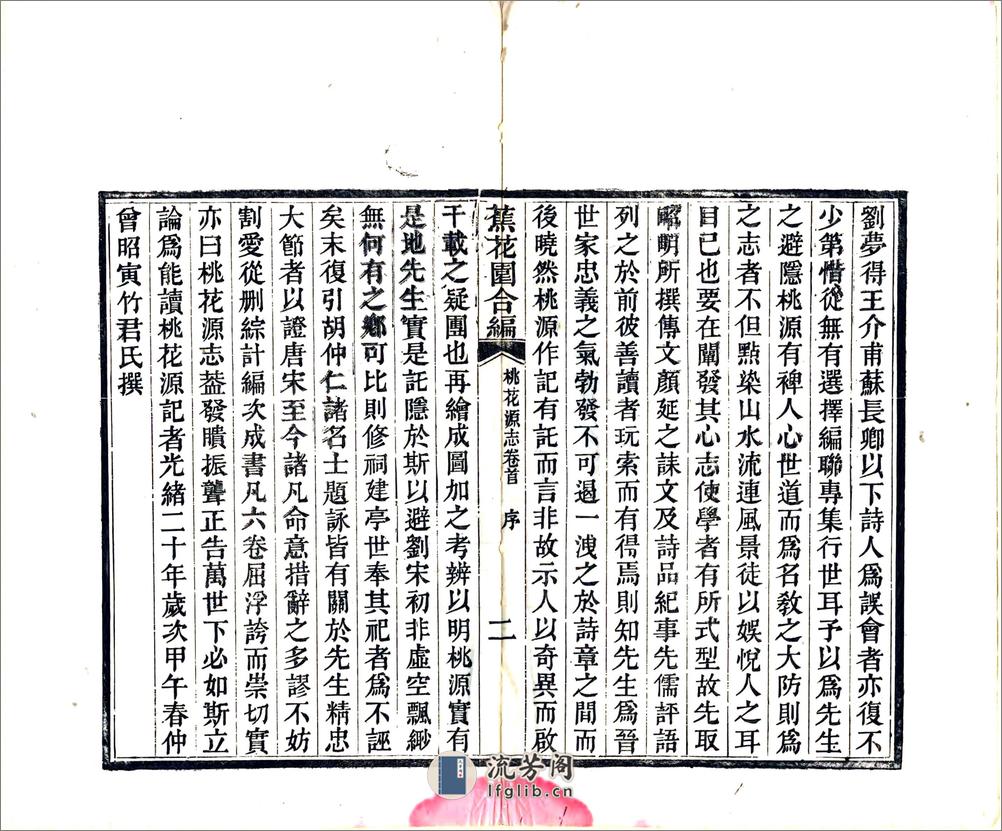 劉夢得王介甫蘇長卿以下詩人爲誤會者亦復不
少第惜從無有選擇編聯專集行世耳予以爲先生
之避隱桃源有裨人心世道而爲名教之大防則爲
之志者不但點染山水流連風景徒以娛悅人之耳
目已也要在闡發其心志使學者有所式型故先取
昭明所撰傳文顏延之誄文及詩品紀事先儒評語
列之於前彼善讀者玩索而有得焉則知先生爲晉
世家忠義之氣勃發不可遏一洩之於詩章之間而
後曉然桃源作記有託而言非故示人以奇異而啟
蕉花園合編
桃花源志卷首 序 二
千載之疑團也再繪成圖加之考辨以明桃源實有
是地先生實是託隱於斯以避劉宋初非虛空飄緲
無何有之鄉可比則修祠建亭世奉其祀者爲不誣
矣末復引胡仲仁諸名士題詠皆有關於先生精忠
大節者以證唐宋至今諸凡命意措辭之多謬不妨
割愛從刪綜計編次成書凡六卷屈浮誇而崇切實
亦曰桃花源志葢發聵振聾正告萬世下必如斯立
論爲能讀桃花源記者光緒二十年歲次甲午春仲
曾昭寅竹君氏撰
流芳阁
lfglib.cn